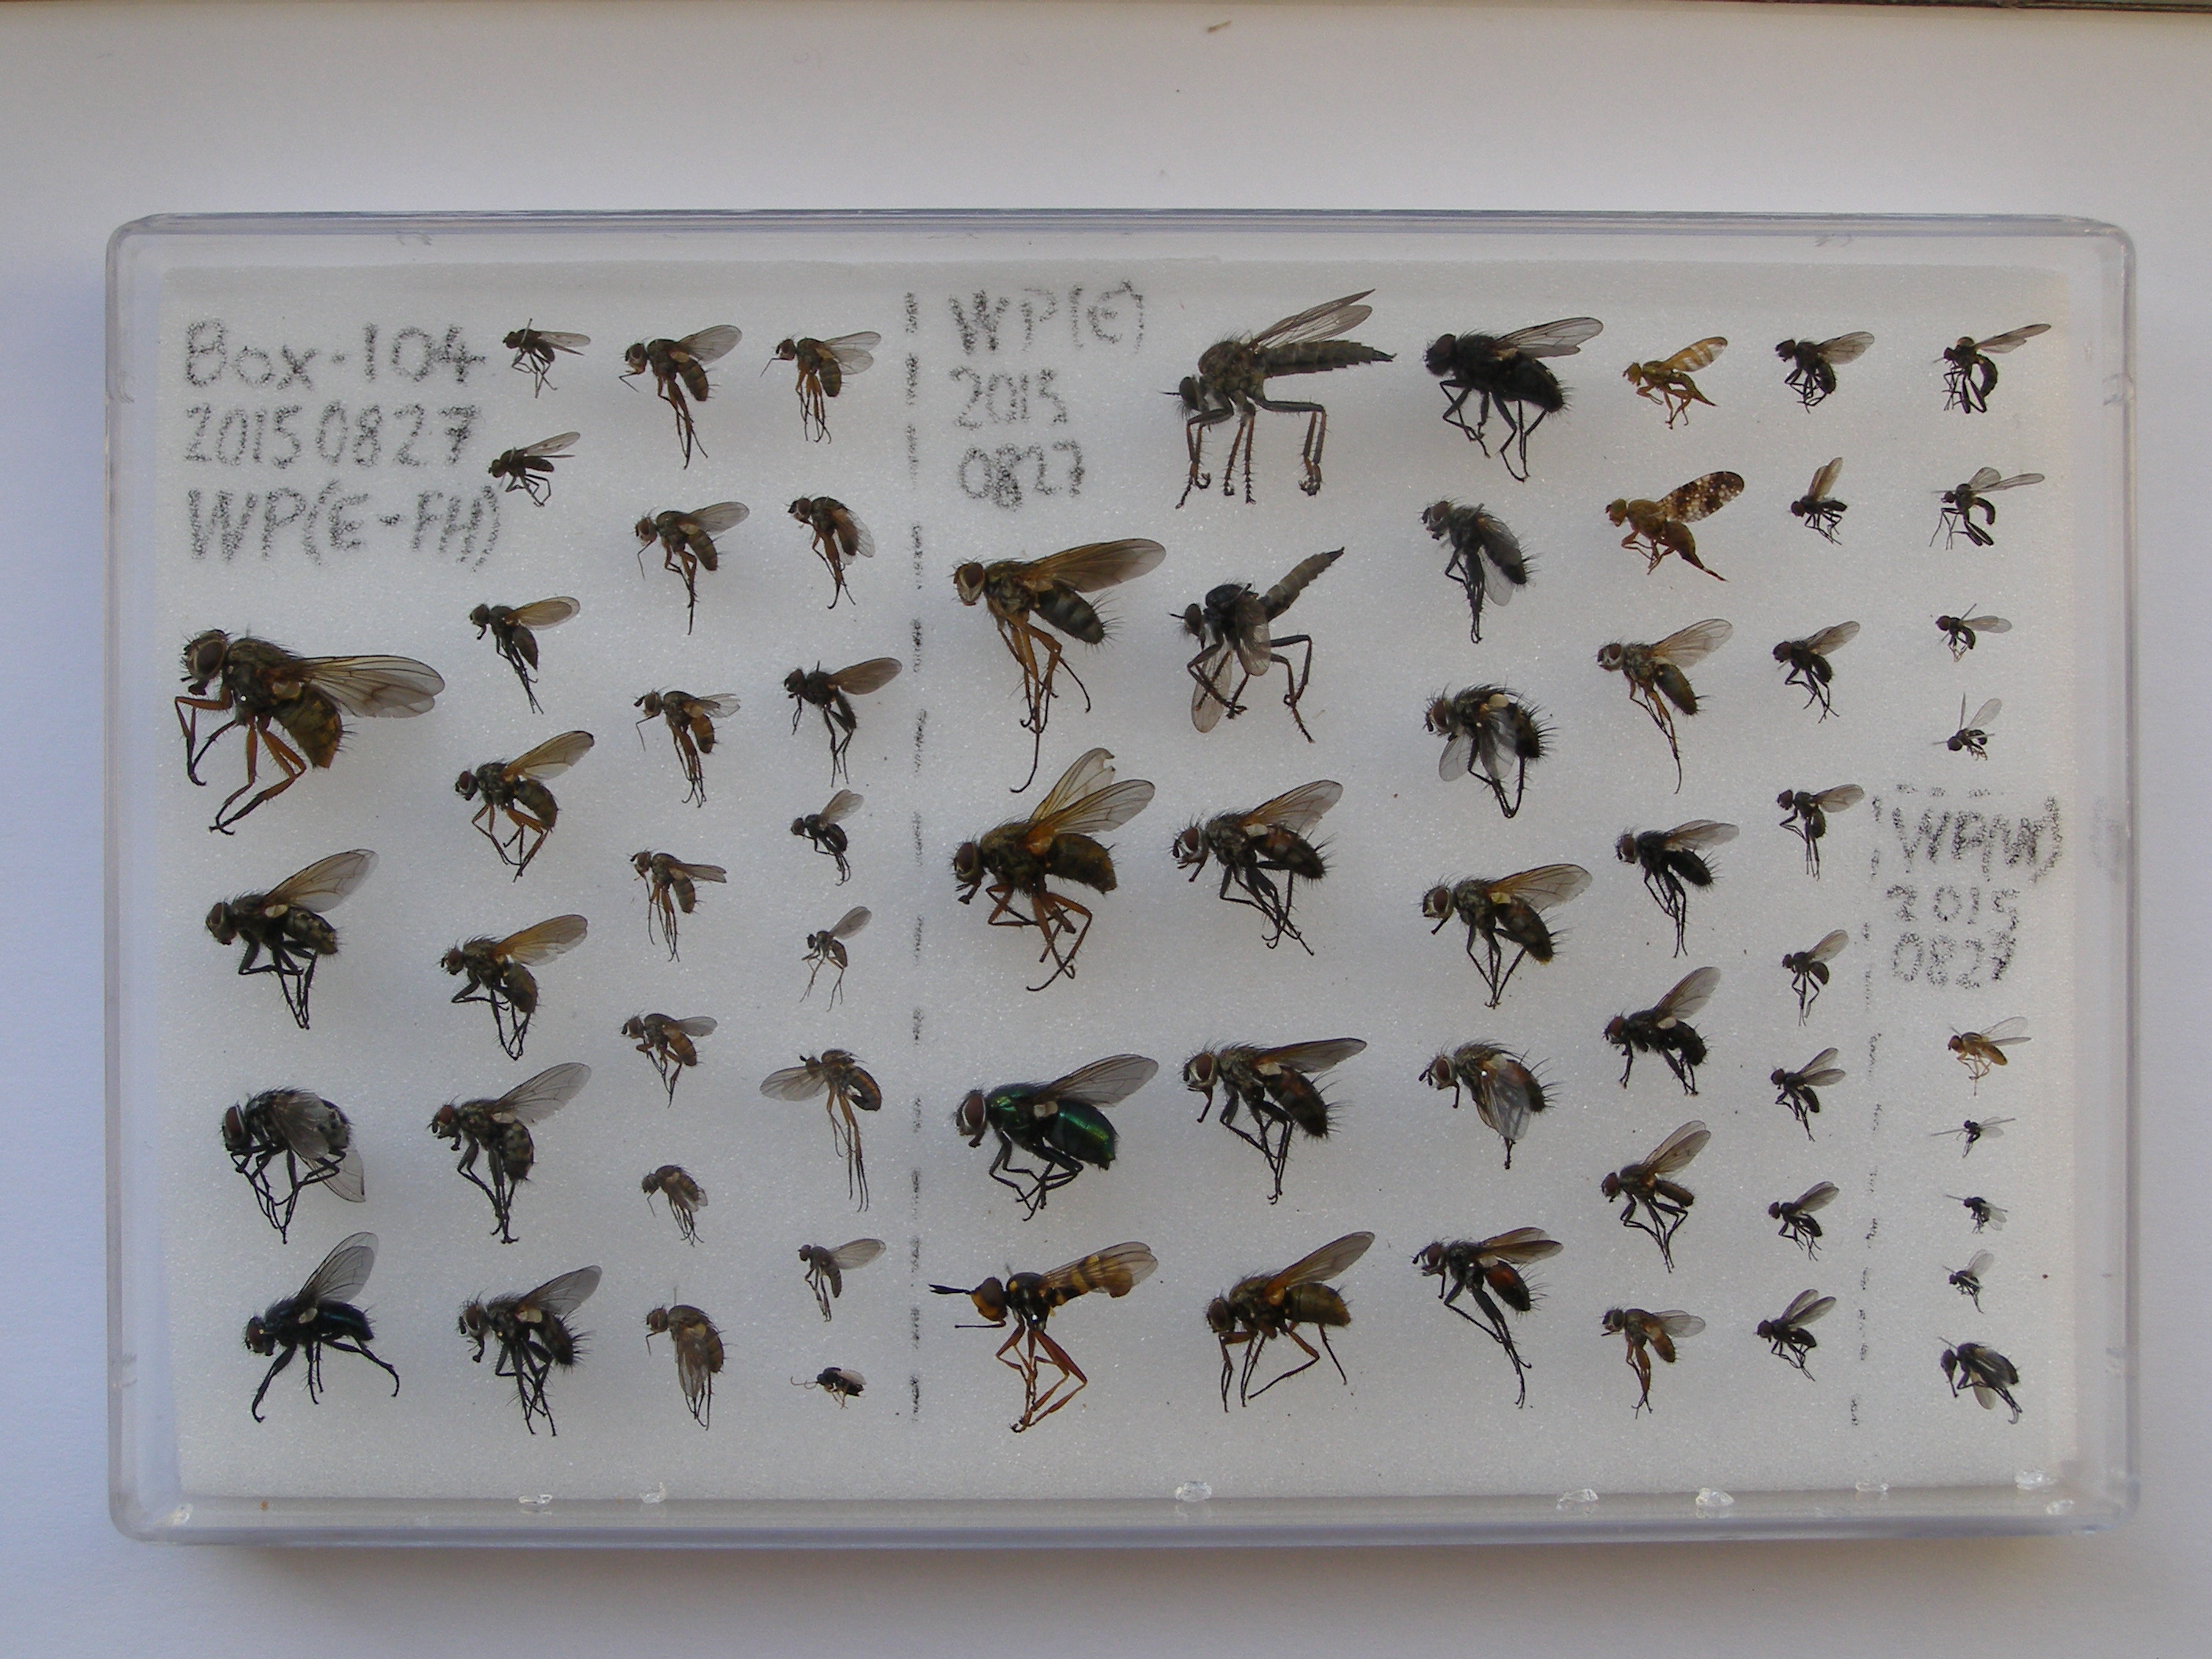 Box-104
20150827
WP(E-FH)
WP(E)
2015
0827
2015
0827